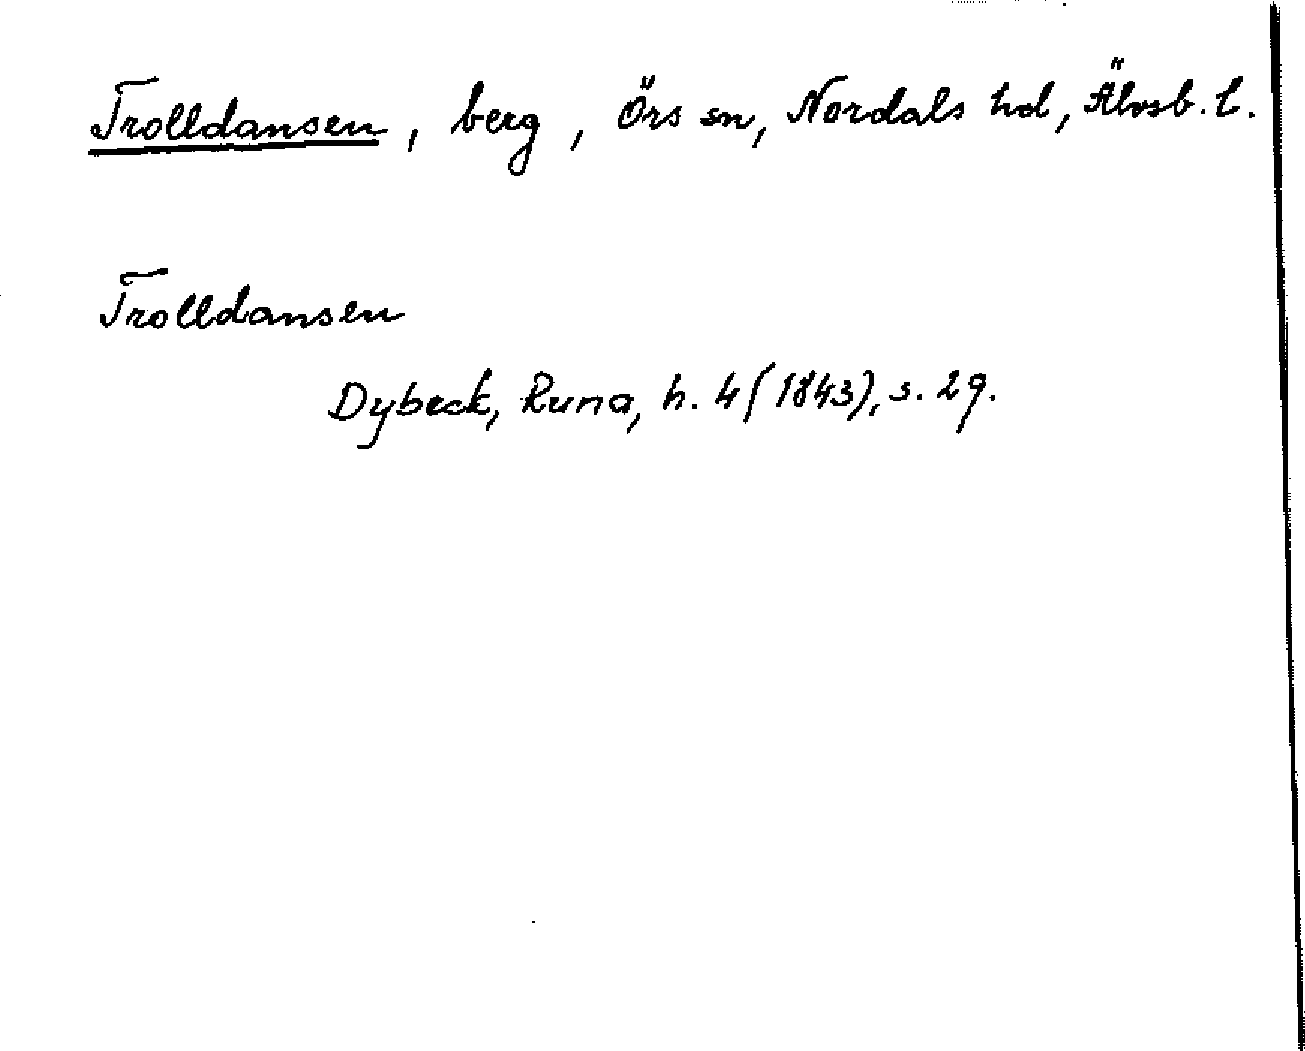 Trolldansen, berg, Örs sn, Nordals hd, Älvsb. l.
Trolldansen
Dybeck, Runa, h. 4 (1843), s. 29.